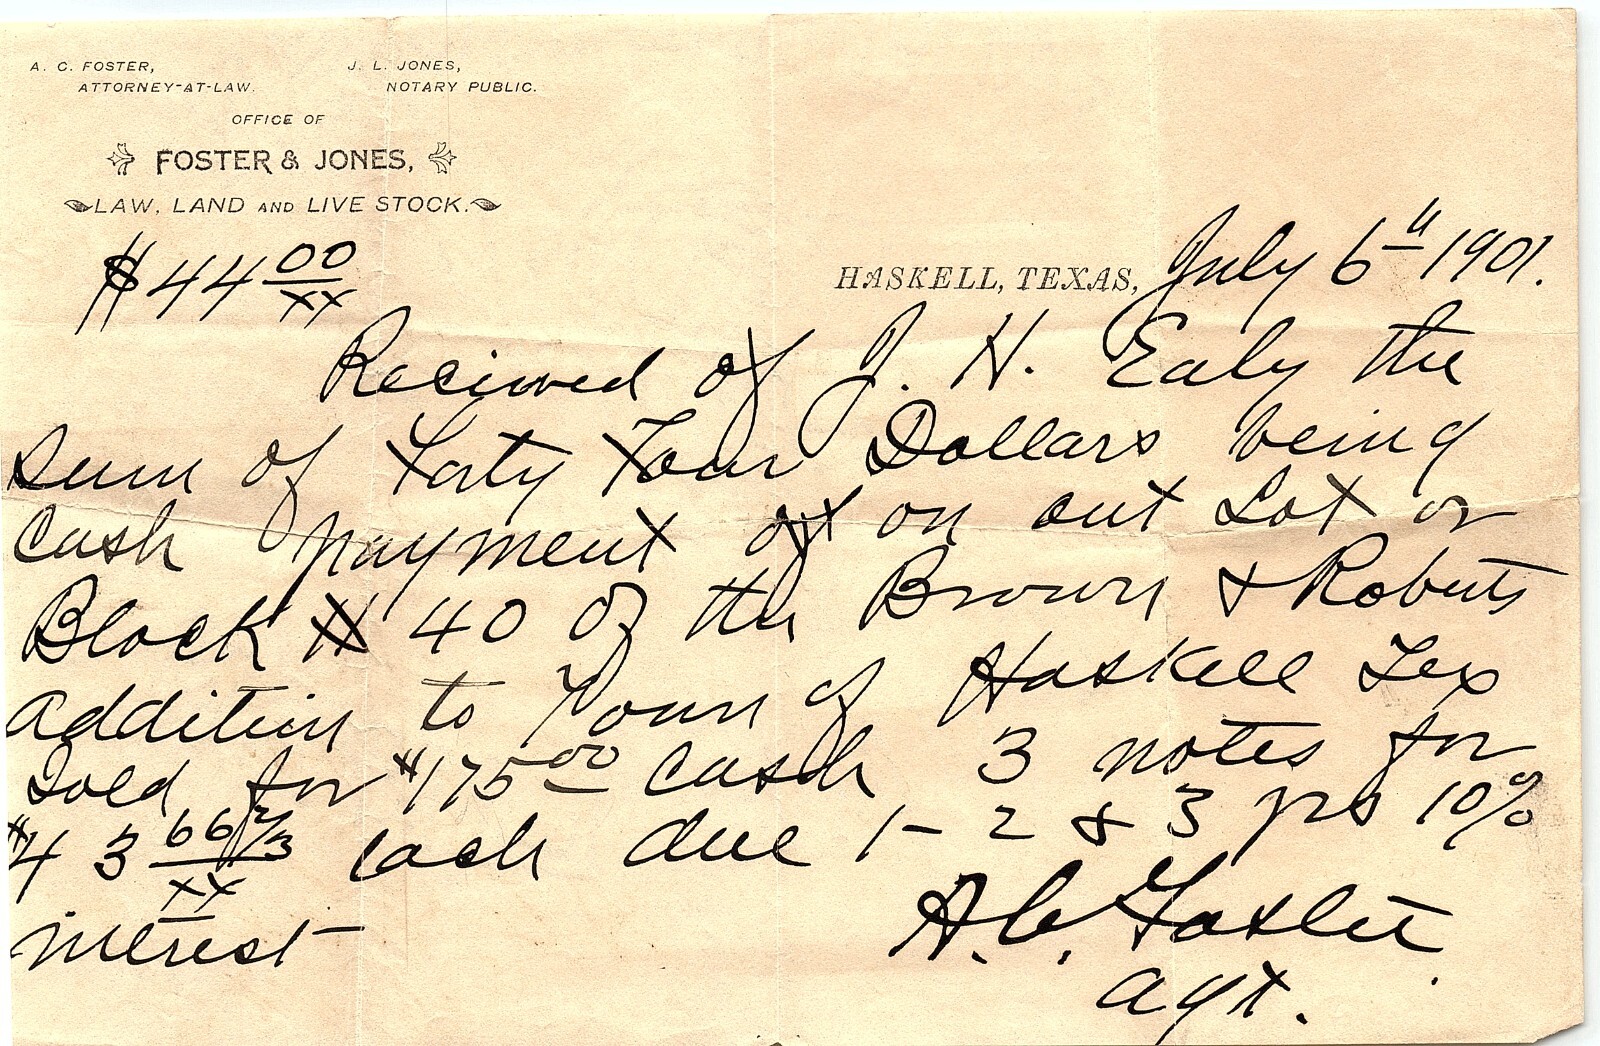 A. C. FOSTER, J. L. JONES,
ATTORNEY-AT-LAW. NOTARY PUBLIC.
OFFICE OF
FOSTER & JONES,
LAW, LAND AND LIVE STOCK.
$44 00/xx
HASKELL, TEXAS, July 6th 1901.
Recieved of J. H. Ealy the
sum of Forty Four Dollars being
cash payment on out Lot or
Block # 40 of the Brown & Roberts
addition to Town of Haskell Tex
Sold for $175 00 cash 3 notes for
$43 66 2/3/xx each due 1- 2 & 3 yrs 10%
interest
A. C. Foster
agt.